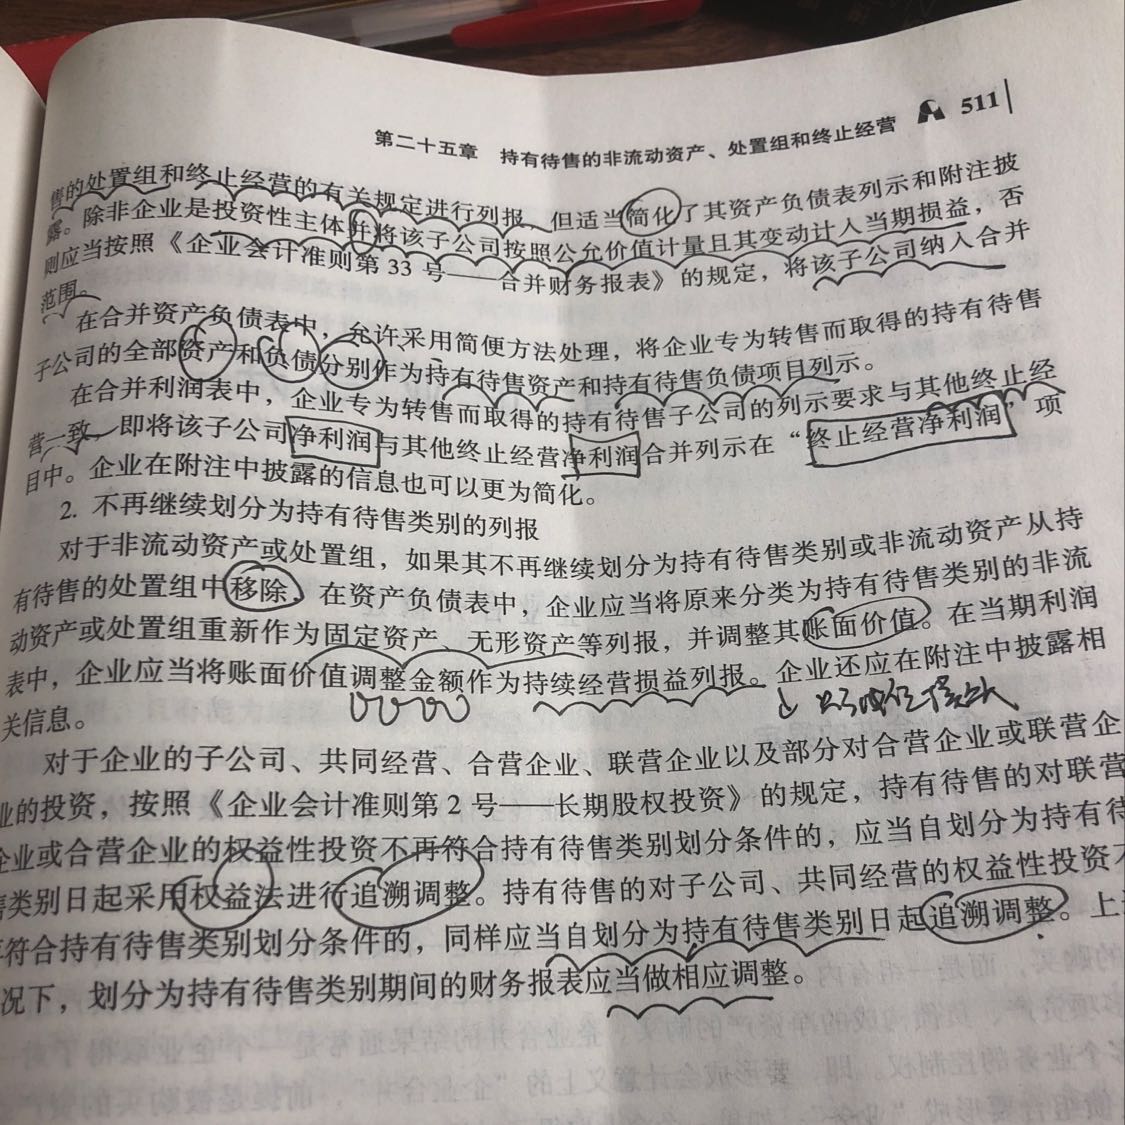 第二十五章 持有待售的非流动资产、处置组和终止经营 511
售的处置组和终止经营的有关规定进行列报，但适当简化了其资产负债表列示和附注披
露。除非企业是投资性主体并将该子公司按照公允价值计量且其变动计入当期损益，否
则应当按照《企业会计准则第 33 号——合并财务报表》的规定，将该子公司纳入合并
范围。
在合并资产负债表中，允许采用简便方法处理，将企业专为转售而取得的持有待售
子公司的全部资产和负债分别作为持有待售资产和持有待售负债项目列示。
在合并利润表中，企业专为转售而取得的持有待售子公司的列示要求与其他终止经
营一致，即将该子公司净利润与其他终止经营净利润合并列示在“终止经营净利润”项
目中。企业在附注中披露的信息也可以更为简化。
2. 不再继续划分为持有待售类别的列报
对于非流动资产或处置组，如果其不再继续划分为持有待售类别或非流动资产从持
有待售的处置组中移除，在资产负债表中，企业应当将原来分类为持有待售类别的非流
动资产或处置组重新作为固定资产、无形资产等列报，并调整其账面价值。在当期利润
表中，企业应当将账面价值调整金额作为持续经营损益列报。企业还应在附注中披露相
关信息。
对于企业的子公司、共同经营、合营企业、联营企业以及部分对合营企业或联营企
业的投资，按照《企业会计准则第 2 号——长期股权投资》的规定，持有待售的对联营
企业或合营企业的权益性投资不再符合持有待售类别划分条件的，应当自划分为持有待
售类别日起采用权益法进行追溯调整。持有待售的对子公司、共同经营的权益性投资不
再符合持有待售类别划分条件的，同样应当自划分为持有待售类别日起追溯调整。上
况下，划分为持有待售类别期间的财务报表应当做相应调整。